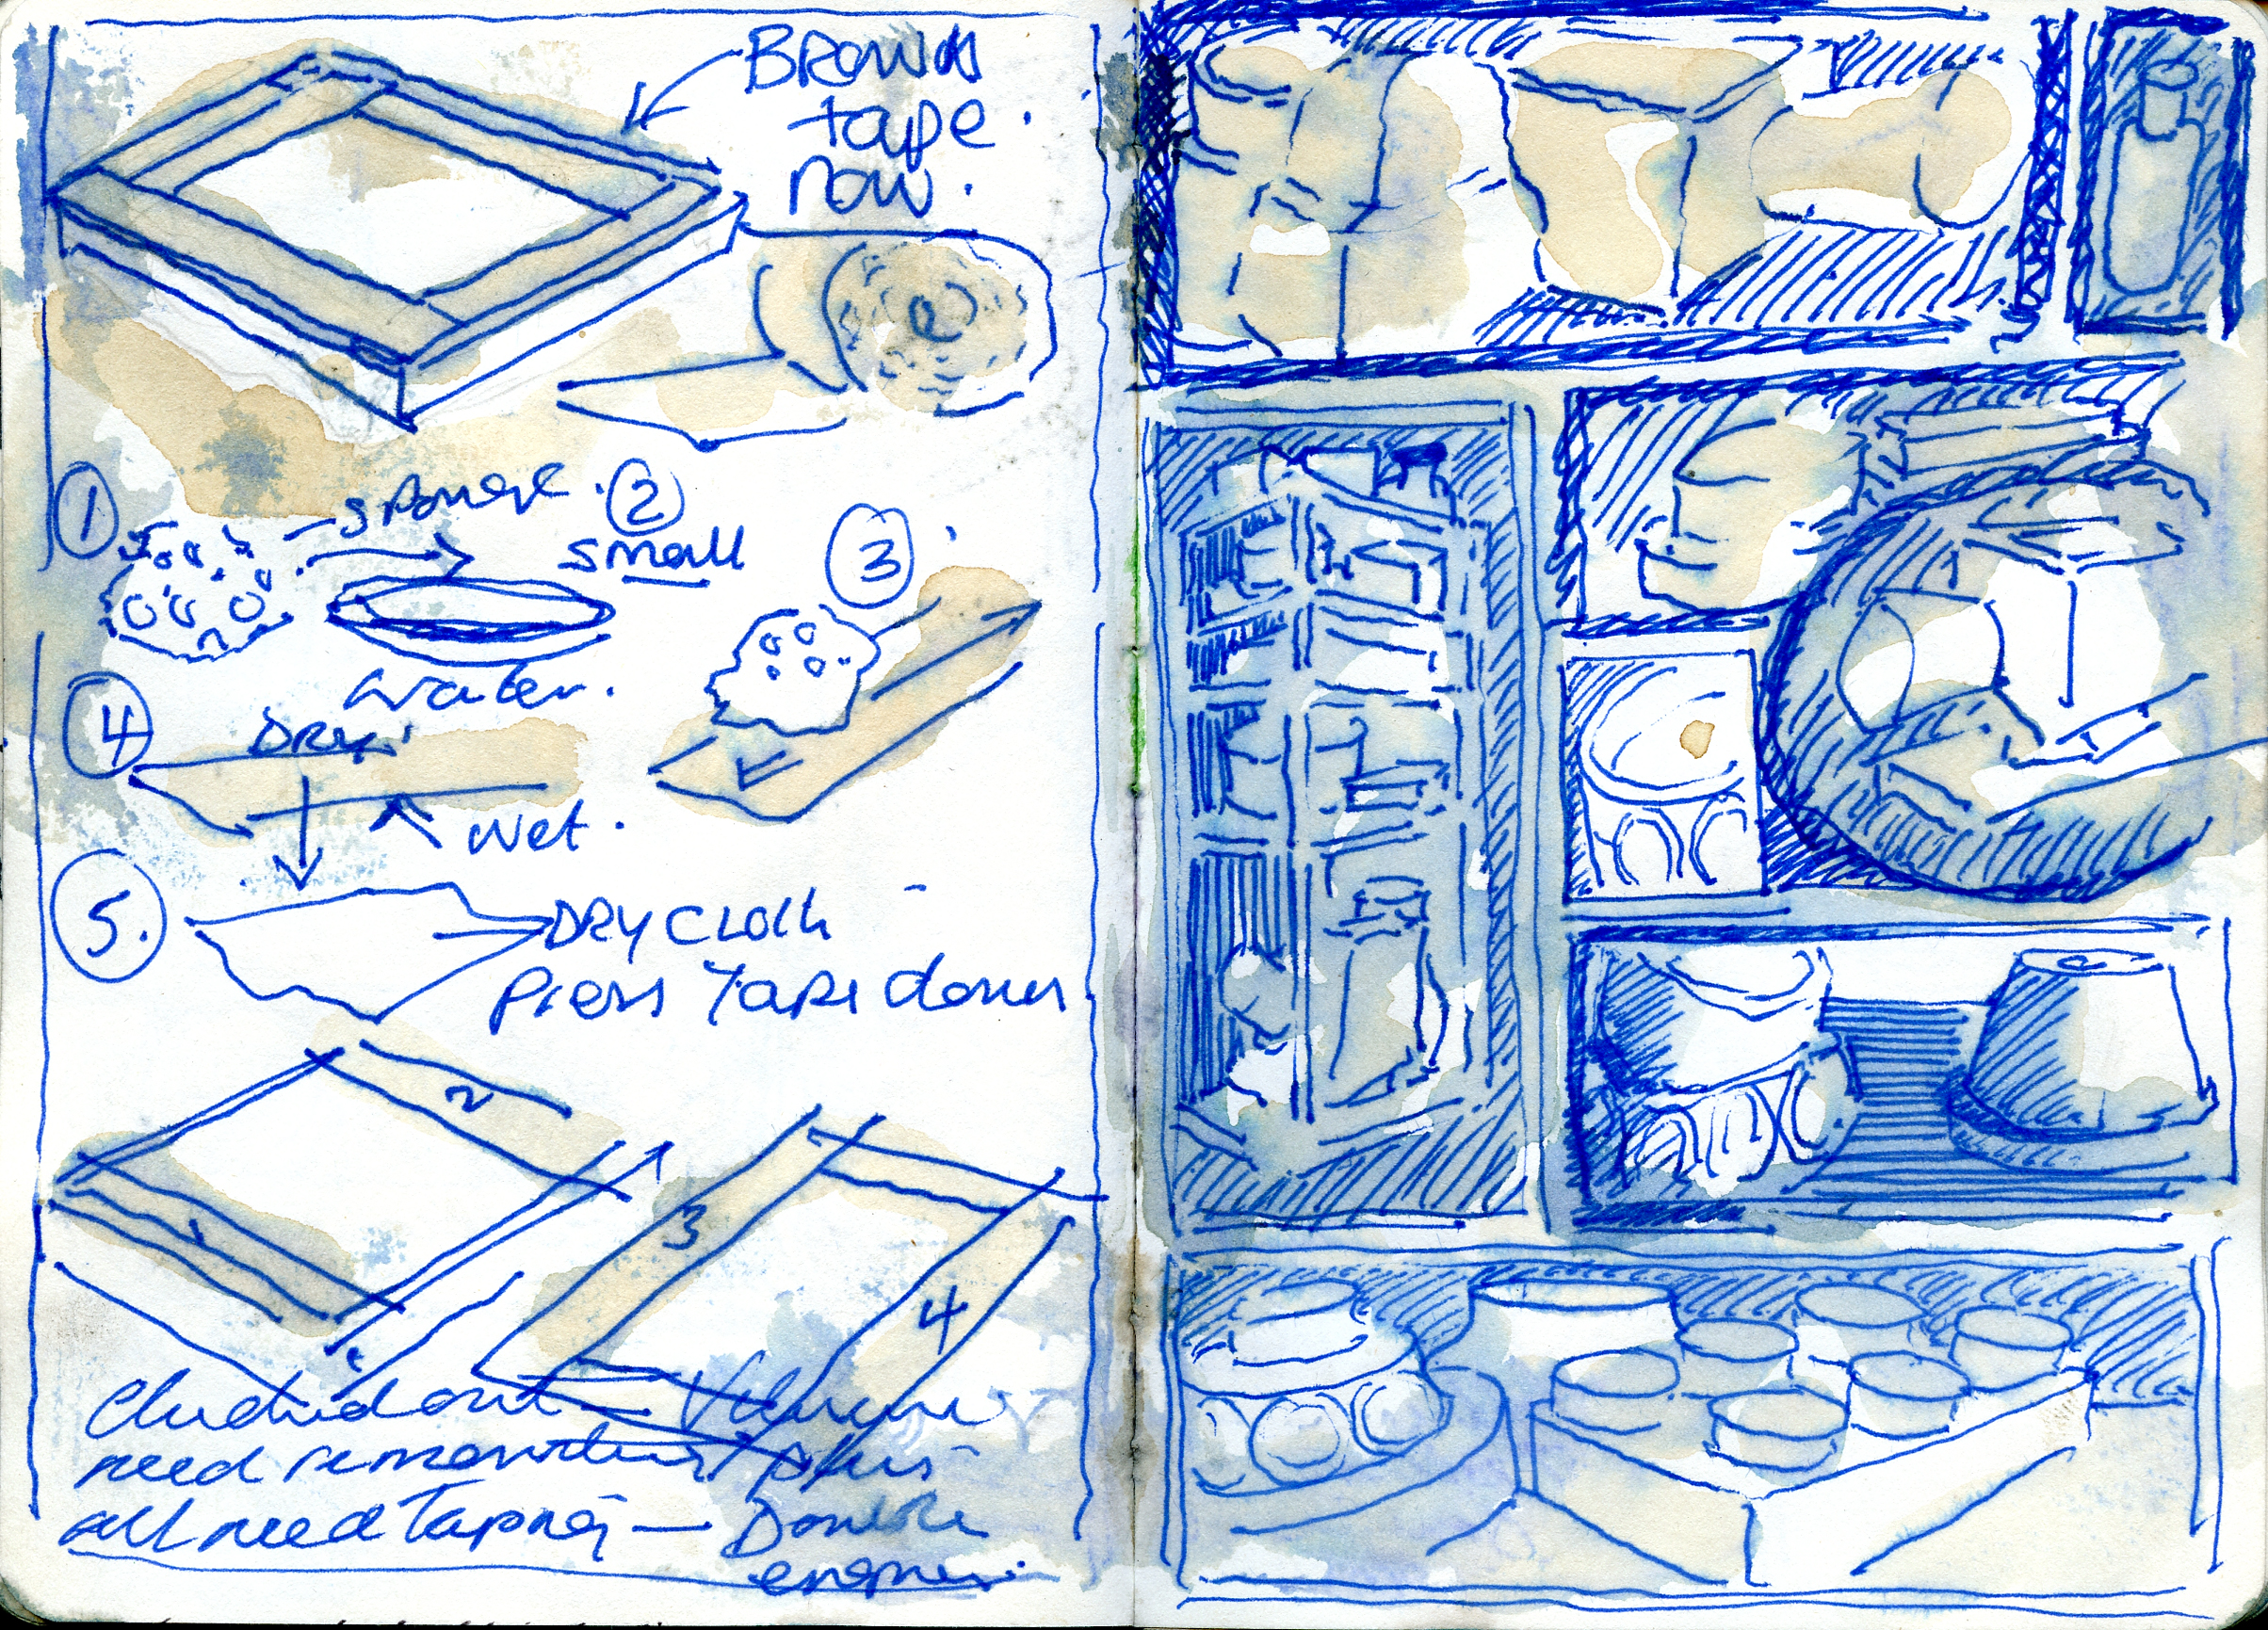 Brown
tape
now.
1
sponge.
2
small
3
water.
4
Dry.
wet.
5.
DRY CLOTH
Press Tape down
2
1
3
4
need
all need Taping — Double